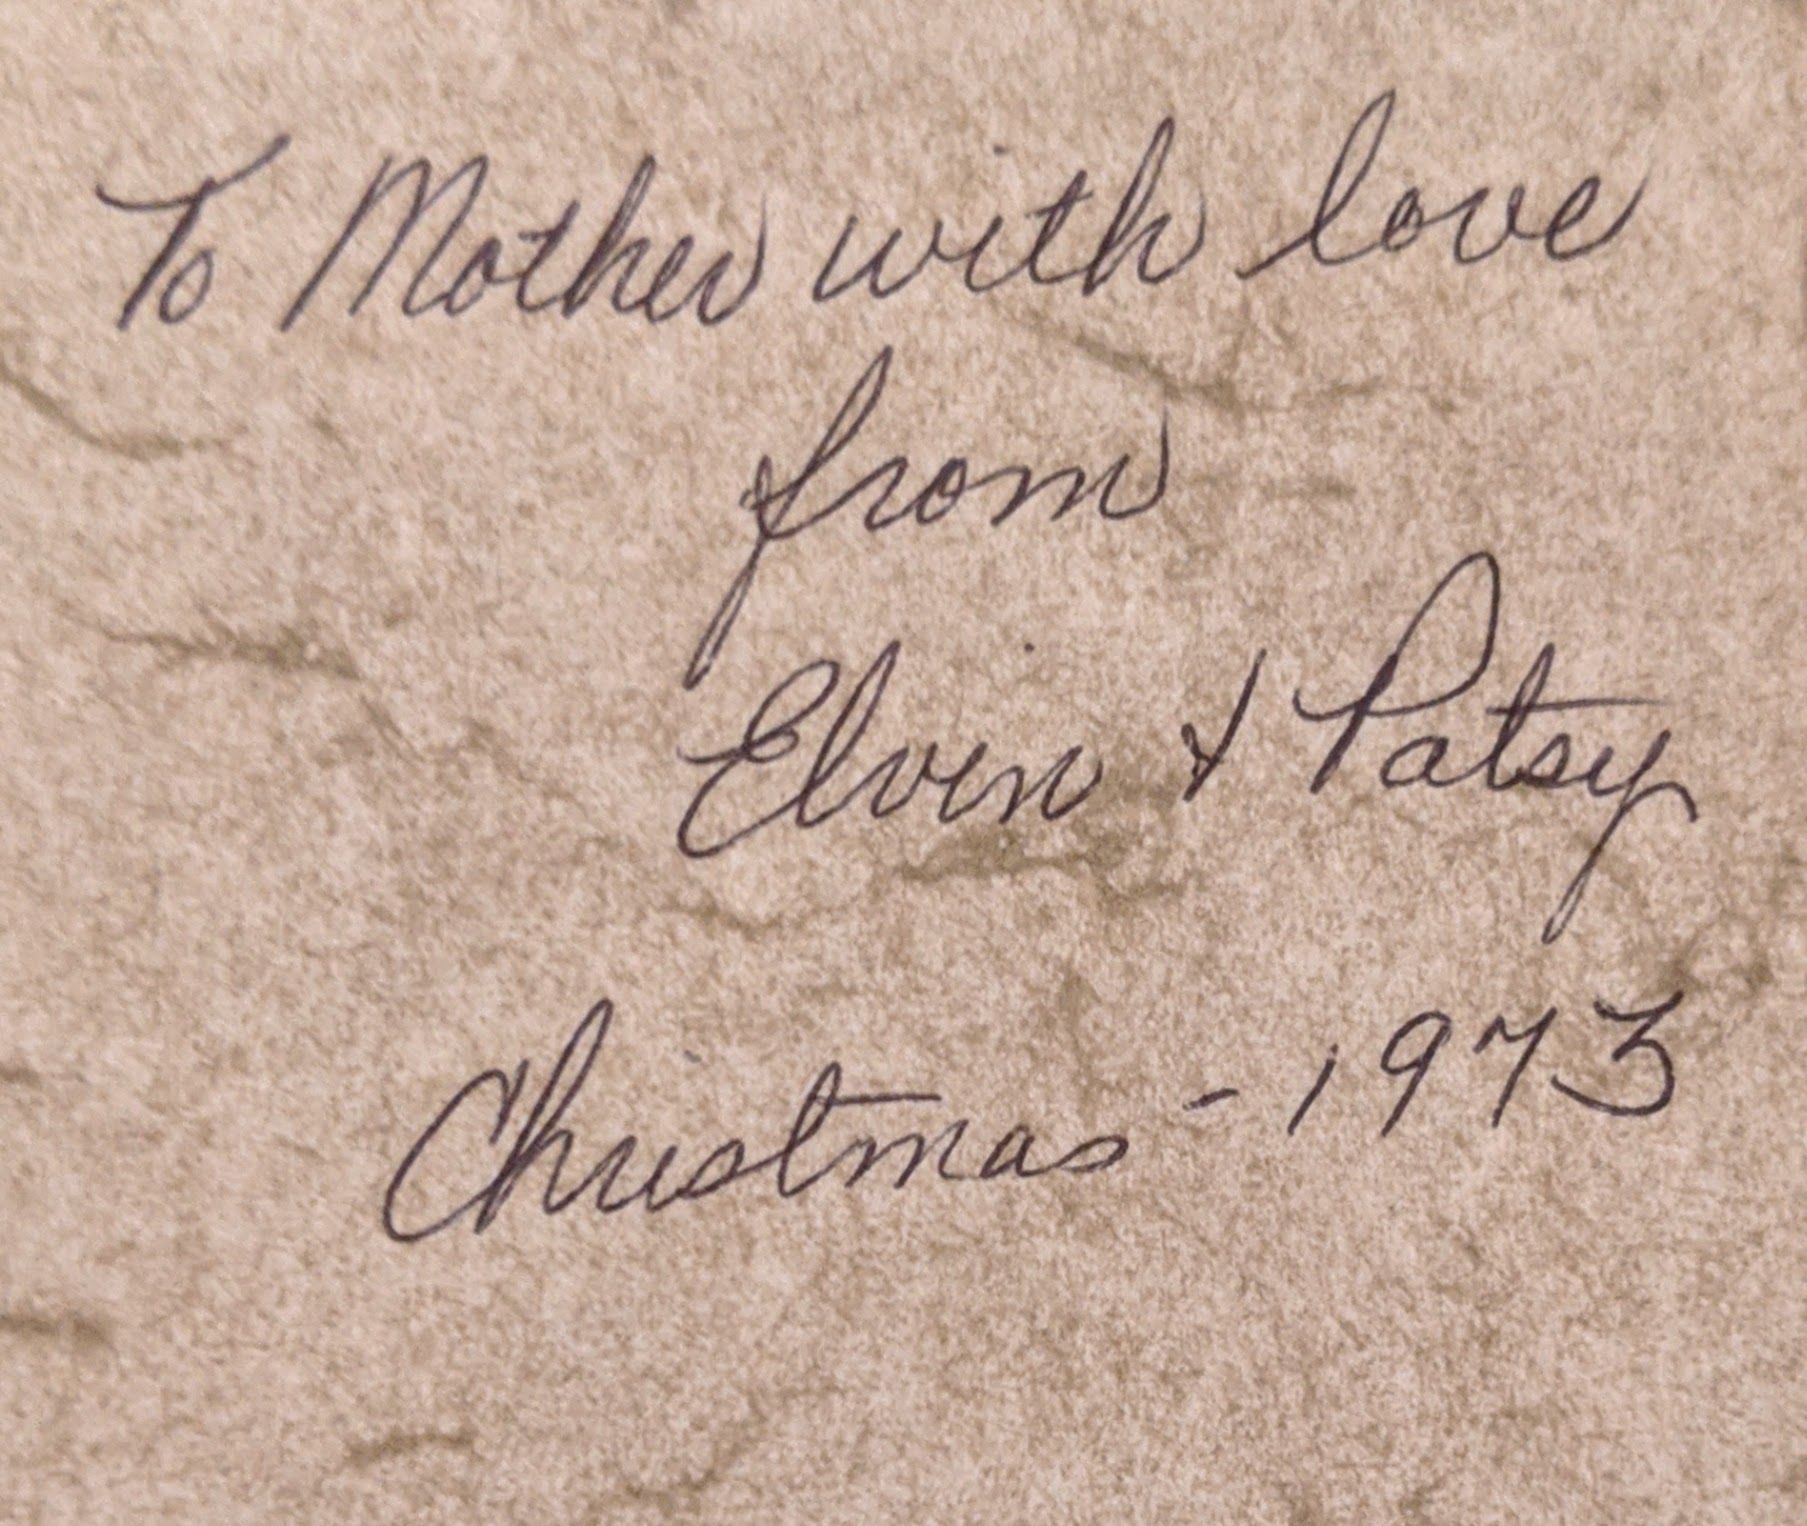 To Mother with love
from
Elvin & Patsy
Christmas - 1973